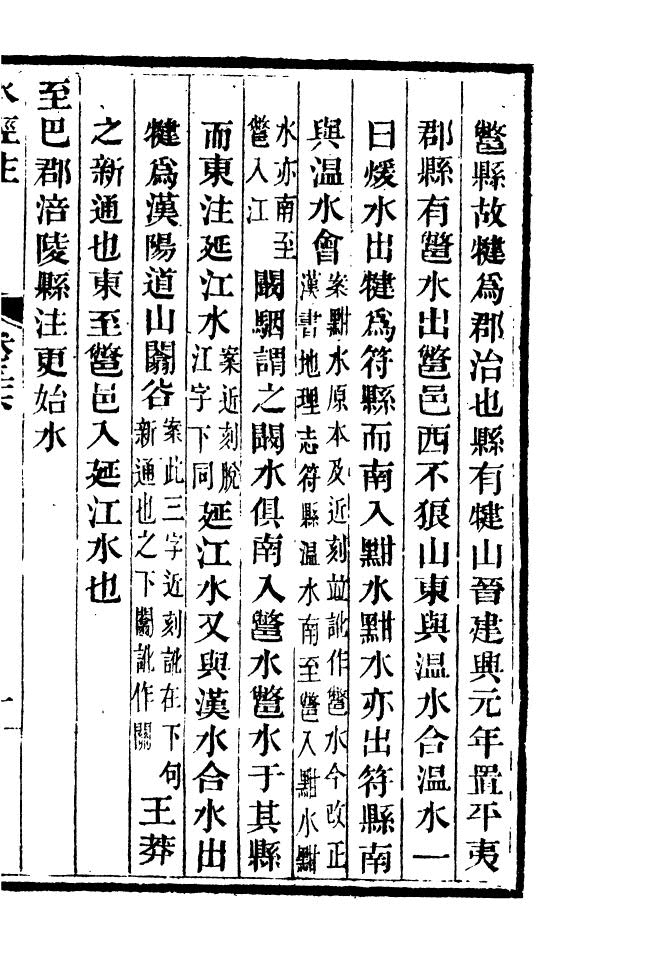 鄨縣故犍爲郡治也縣有犍山晉建興元年置平夷
郡縣有鄨水出鄨邑西不狼山東與温水合温水一
曰煖水出犍爲符縣而南入黚水黚水亦出符縣南
與温水會案黚水原本及近刻並訛作鄨水今改正漢書地理志符縣温水南至鄨入黚水黚
水亦南至鄨入江闞駰謂之闞水俱南入鄨水鄨水于其縣
而東注延江水案近刻脫江字下同延江水又與漢水合水出
犍爲漢陽道山闟谷案此三字近刻訛在下句新通也之下闟訛作關王莽
之新通也東至鄨邑入延江水也
至巴郡涪陵縣注更始水
水經注